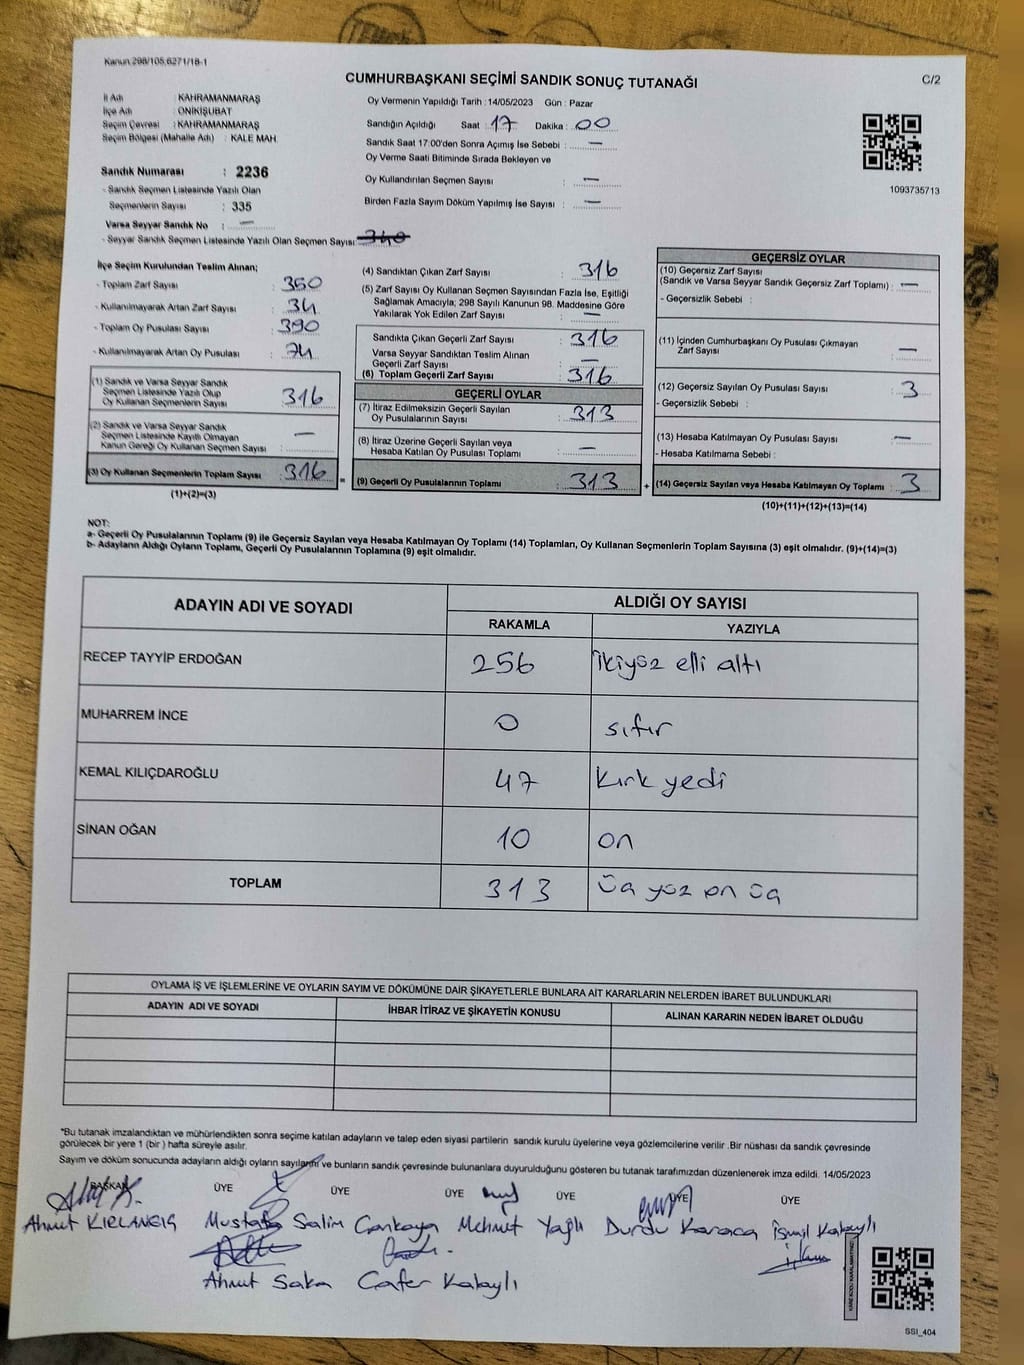 Kanun:298/105,6271/18-1
CUMHURBAŞKANI SEÇİMİ SANDIK SONUÇ TUTANAĞI
C/2
İl Adı : KAHRAMANMARAŞ
İlçe Adı : ONİKİŞUBAT
Seçim Çevresi : KAHRAMANMARAŞ
Seçim Bölgesi (Mahalle Adı) : KALE MAH.
Sandık Numarası : 2236
- Sandık Seçmen Listesinde Yazılı Olan
Seçmenlerin Sayısı : 335
Varsa Seyyar Sandık No : —
- Seyyar Sandık Seçmen Listesinde Yazılı Olan Seçmen Sayısı: 340
Oy Vermenin Yapıldığı Tarih : 14/05/2023 Gün : Pazar
Sandığın Açıldığı Saat : 17 Dakika : 00
Sandık Saat 17:00'den Sonra Açımış İse Sebebi : —
Oy Verme Saati Bitiminde Sırada Bekleyen ve
Oy Kullandırılan Seçmen Sayısı : —
Birden Fazla Sayım Döküm Yapılmış İse Sayısı : —
1093735713
İlçe Seçim Kurulundan Teslim Alınan;
- Toplam Zarf Sayısı : 350
- Kullanılmayarak Artan Zarf Sayısı : 34
- Toplam Oy Pusulası Sayısı : 390
- Kullanılmayarak Artan Oy Pusulası : 74
(1) Sandık ve Varsa Seyyar Sandık
Seçmen Listesinde Yazılı Olup
Oy Kullanan Seçmenlerin Sayısı : 316
(2) Sandık ve Varsa Seyyar Sandık
Seçmen Listesinde Kayıtlı Olmayan
Kanun Gereği Oy Kullanan Seçmen Sayısı : —
(3) Oy Kullanan Seçmenlerin Toplam Sayısı : 316
(1)+(2)=(3)
(4) Sandıktan Çıkan Zarf Sayısı : 316
(5) Zarf Sayısı Oy Kullanan Seçmen Sayısından Fazla İse, Eşitliği
Sağlamak Amacıyla; 298 Sayılı Kanunun 98. Maddesine Göre
Yakılarak Yok Edilen Zarf Sayısı : —
Sandıkta Çıkan Geçerli Zarf Sayısı : 316
Varsa Seyyar Sandıktan Teslim Alınan
Geçerli Zarf Sayısı : —
(6) Toplam Geçerli Zarf Sayısı : 316
GEÇERLİ OYLAR
(7) İtiraz Edilmeksizin Geçerli Sayılan
Oy Pusulalarının Sayısı : 313
(8) İtiraz Üzerine Geçerli Sayılan veya
Hesaba Katılan Oy Pusulası Toplamı : —
= (9) Geçerli Oy Pusulalarının Toplamı : 313
GEÇERSİZ OYLAR
(10) Geçersiz Zarf Sayısı
(Sandık ve Varsa Seyyar Sandık Geçersiz Zarf Toplamı) : —
- Geçersizlik Sebebi :
(11) İçinden Cumhurbaşkanı Oy Pusulası Çıkmayan
Zarf Sayısı : —
(12) Geçersiz Sayılan Oy Pusulası Sayısı : 3
- Geçersizlik Sebebi :
(13) Hesaba Katılmayan Oy Pusulası Sayısı : —
- Hesaba Katılmama Sebebi :
+ (14) Geçersiz Sayılan veya Hesaba Katılmayan Oy Toplamı : 3
(10)+(11)+(12)+(13)=(14)
NOT:
a- Geçerli Oy Pusulalarının Toplamı (9) ile Geçersiz Sayılan veya Hesaba Katılmayan Oy Toplamı (14) Toplamları, Oy Kullanan Seçmenlerin Toplam Sayısına (3) eşit olmalıdır. (9)+(14)=(3)
b- Adayların Aldığı Oyların Toplamı, Geçerli Oy Pusulalarının Toplamına (9) eşit olmalıdır.
ADAYIN ADI VE SOYADI
ALDIĞI OY SAYISI
RAKAMLA YAZIYLA
RECEP TAYYİP ERDOĞAN 256 ikiyüz elli altı
MUHARREM İNCE 0 sıfır
KEMAL KILIÇDAROĞLU 47 kırk yedi
SİNAN OĞAN 10 on
TOPLAM 313 üç yüz on üç
OYLAMA İŞ VE İŞLEMLERİNE VE OYLARIN SAYIM VE DÖKÜMÜNE DAİR ŞİKAYETLERLE BUNLARA AİT KARARLARIN NELERDEN İBARET BULUNDUKLARI
ADAYIN ADI VE SOYADI İHBAR İTİRAZ VE ŞİKAYETİN KONUSU ALINAN KARARIN NEDEN İBARET OLDUĞU
*Bu tutanak imzalandıktan ve mühürlendikten sonra seçime katılan adayların ve talep eden siyasi partilerin sandık kurulu üyelerine veya gözlemcilerine verilir .Bir nüshası da sandık çevresinde
görülecek bir yere 1 (bir ) hafta süreyle asılır.
Sayım ve döküm sonucunda adayların aldığı oyların sayılarını ve bunların sandık çevresinde bulunanlara duyurulduğunu gösteren bu tutanak tarafımızdan düzenlenerek imza edildi. 14/05/2023
BAŞKAN ÜYE ÜYE ÜYE ÜYE ÜYE ÜYE
Ahmet KIRLANGIÇ Mustafa Salim Çankaya Mehmet Yağlı Durdu Karaca İsmail Kalaylı
Ahmet Saka Cafer Kalaylı
SSI_404